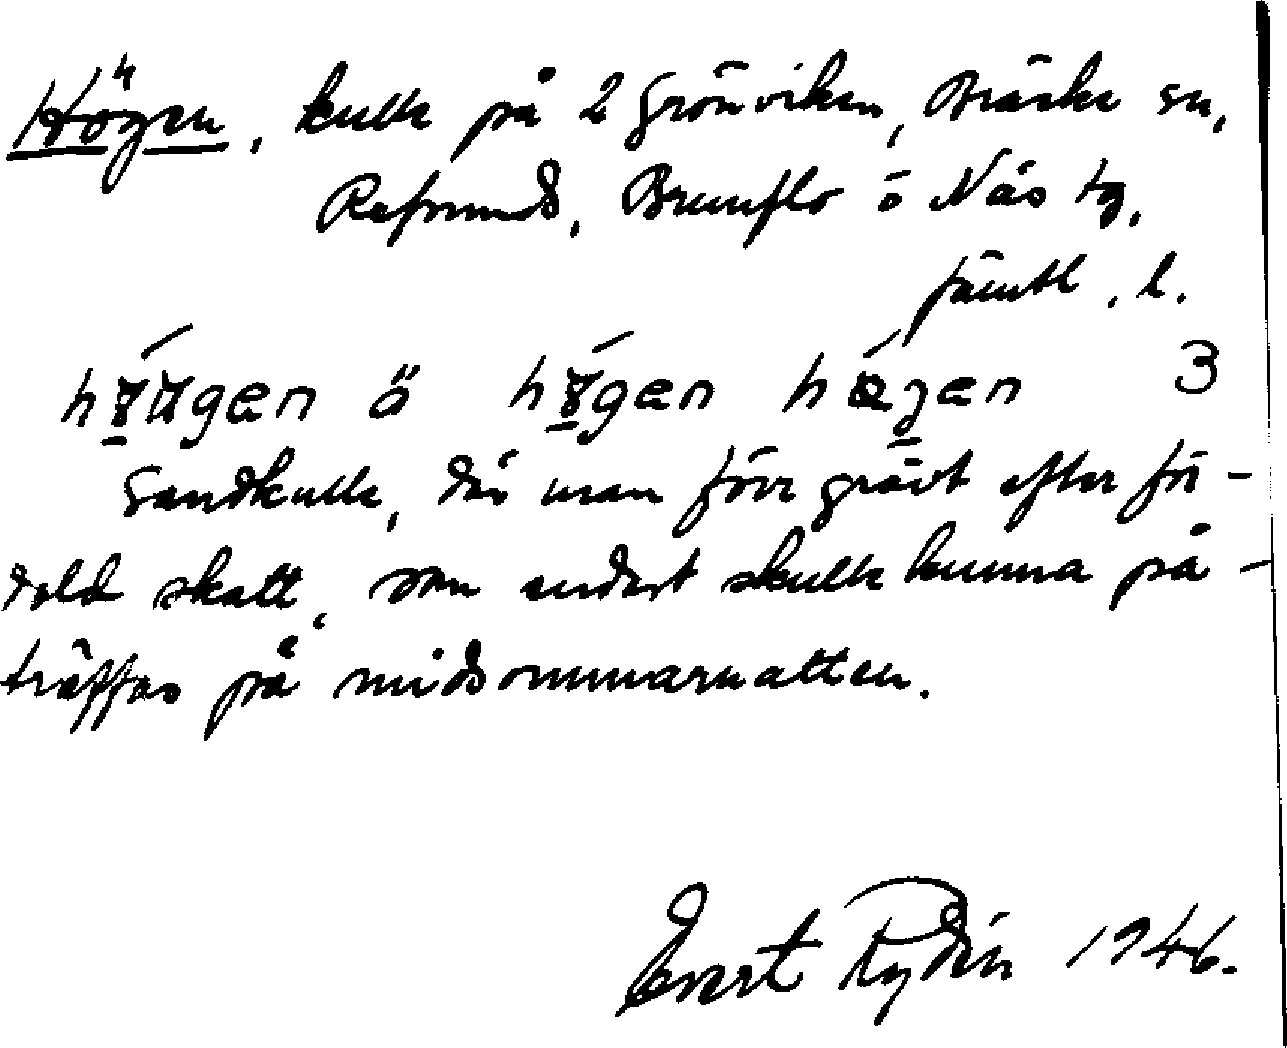 Högen, kulle på 2 Grönviken, Bräcke sn,
Refsunds, Brunflo o Näs tg,
Jämtl. l.
högen 3
Sandkulle, där man förr grävt efter för-
dold skatt, som endast skulle kunna på-
träffas på midsommarnatten.
Evert Rydén 1946.